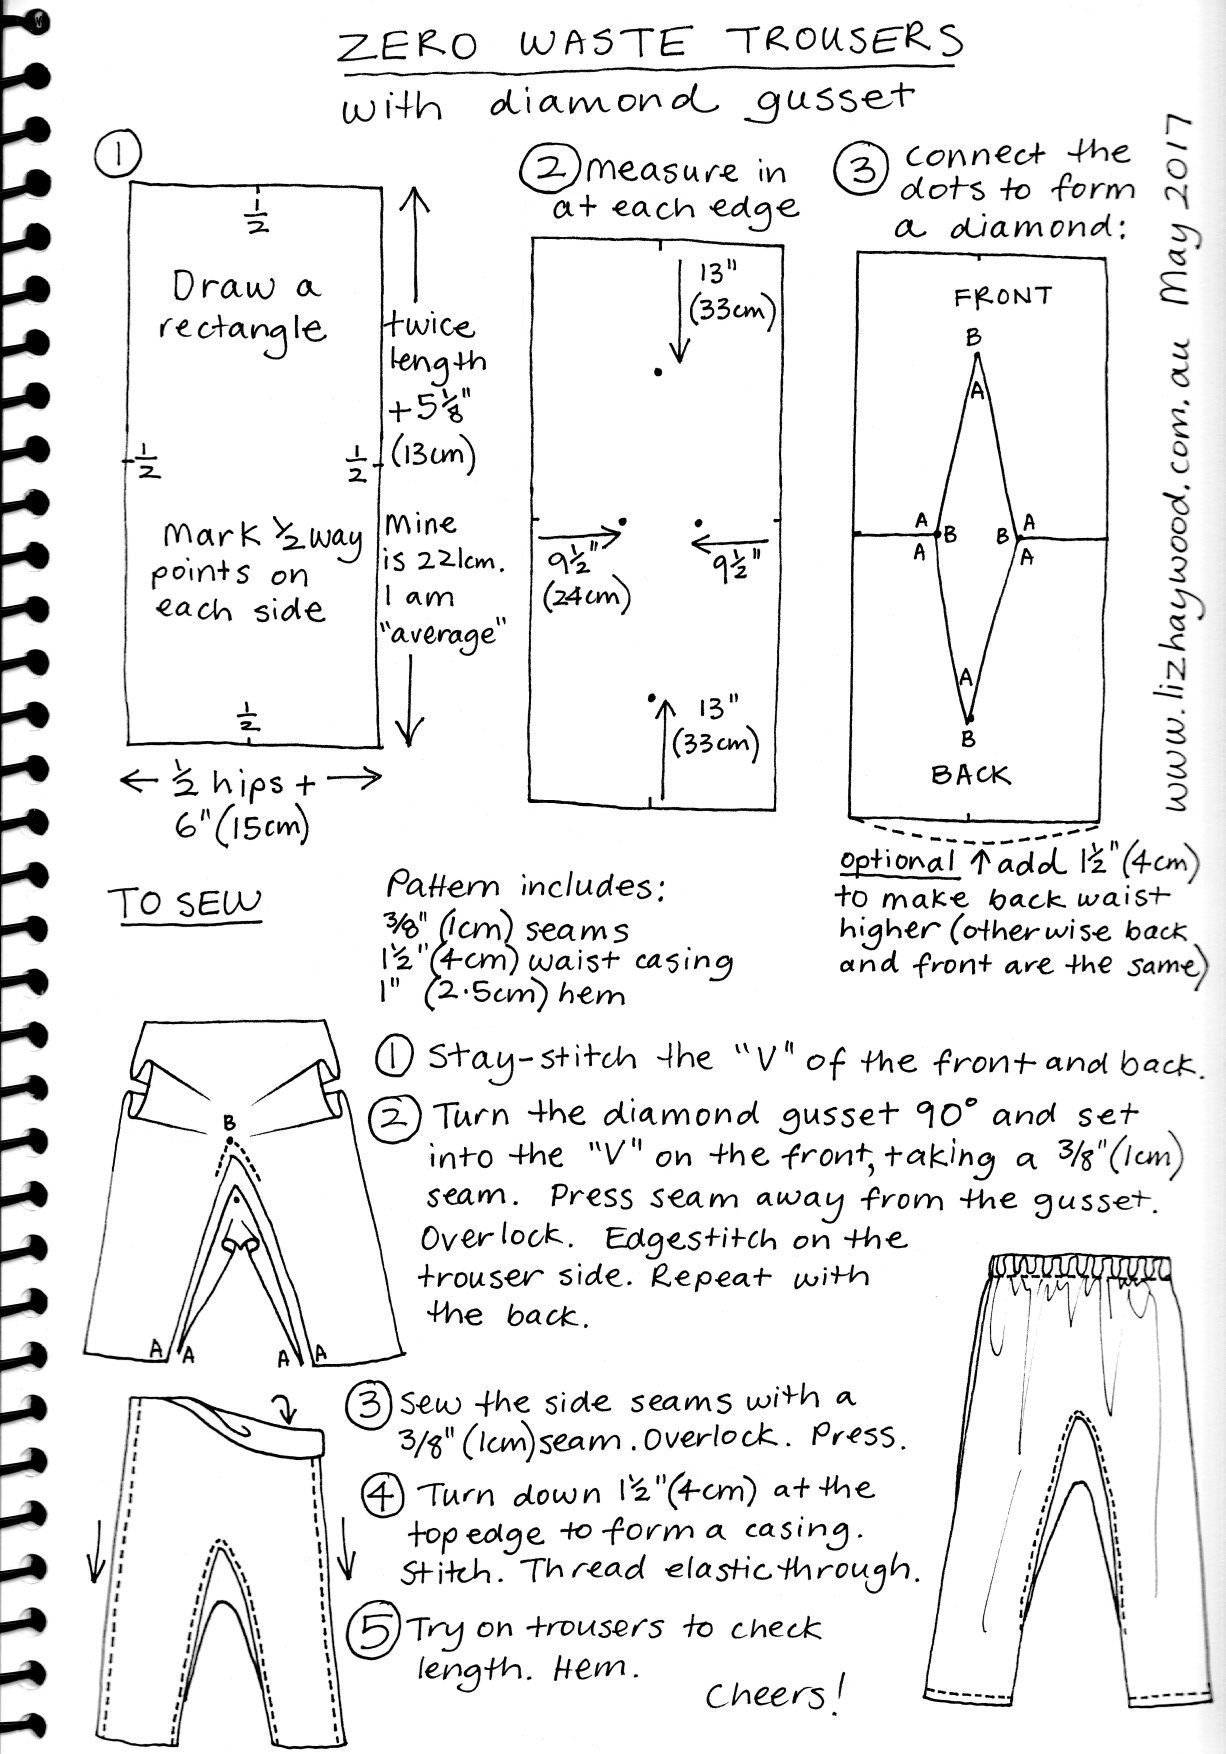 ZERO WASTE TROUSERS
with diamond gusset
①
1/2
Draw a
rectangle
1/2
1/2
Mark 1/2 way
points on
each side
1/2
twice
length
+5 1/8"
(13cm)
Mine
is 221cm.
I am
"average"
← 1/2 hips + →
6" (15cm)
② measure in
at each edge
13"
(33cm)
9 1/2"
(24cm)
9 1/2"
13"
(33cm)
③ connect the
dots to form
a diamond:
FRONT
B
A
A
B
B
A
A
A
A
B
BACK
optional ↑ add 1 1/2" (4cm)
to make back waist
higher (otherwise back
and front are the same)
www.lizhaywood.com.au May 2017
TO SEW
Pattern includes:
3/8" (1cm) seams
1 1/2" (4cm) waist casing
1" (2.5cm) hem
B
A
A
A
A
① Stay-stitch the "V" of the front and back.
② Turn the diamond gusset 90° and set
into the "V" on the front, taking a 3/8" (1cm)
seam. Press seam away from the gusset.
Overlock. Edgestitch on the
trouser side. Repeat with
the back.
③ Sew the side seams with a
3/8" (1cm) seam. Overlock. Press.
④ Turn down 1 1/2" (4cm) at the
top edge to form a casing.
Stitch. Thread elastic through.
⑤ Try on trousers to check
length. Hem.
Cheers!